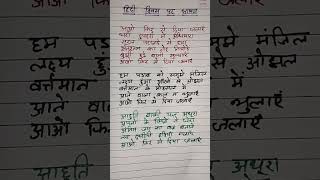 हिंदी दिवस पर
आओ फिर से दिया जलाएं
भरी दुपहरी में अंधियारा
सूरज परछाई से हारा
अंतरतम का नेह निचोड़े
बुझी हुई बाती सुलगाएं
आओ फिर से दिया जलाएं
हम पड़ाव को समझे मंजिल
लक्ष्य हुआ आंखों से ओझल
वर्तमान के मोहजाल में
आने वाला कल न भुलाएं
आओ फिर से दिया जलाएं
आहुति बाकी यज्ञ अधूरा
अपनों के विघ्नों ने घेरा
अंतिम जय का वज्र बनाने
नव दधीचि हड्डियां गलाएं
आओ फिर से दिया जलाएं